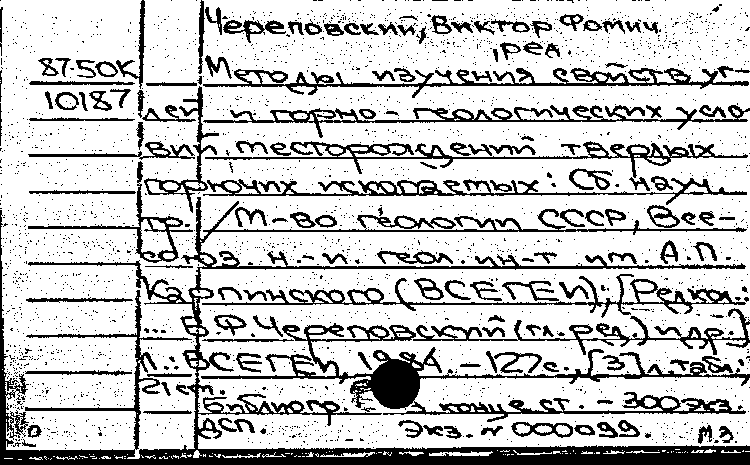 Череповский, Виктор Фомич
, ред.
87-50К Методы изучения свойств уг-
10187 лей и горно-геологических усло-
вий месторождений твердых
горючих ископаемых: Сб. науч.
тр. / М-во геологии СССР, Все-
союз. н.-и. геол. ин-т им. А.П.
Карпинского (ВСЕГЕИ); [Редкол.:
... В.Ф. Череповский (гл. ред.) и др.]
Л.: ВСЕГЕИ, 1984. - 127с., [3] л. табл.;
21 cm.
Библиогр. в конце ст. - 300 экз.
ДСП. Экз. № 000099. М.З.